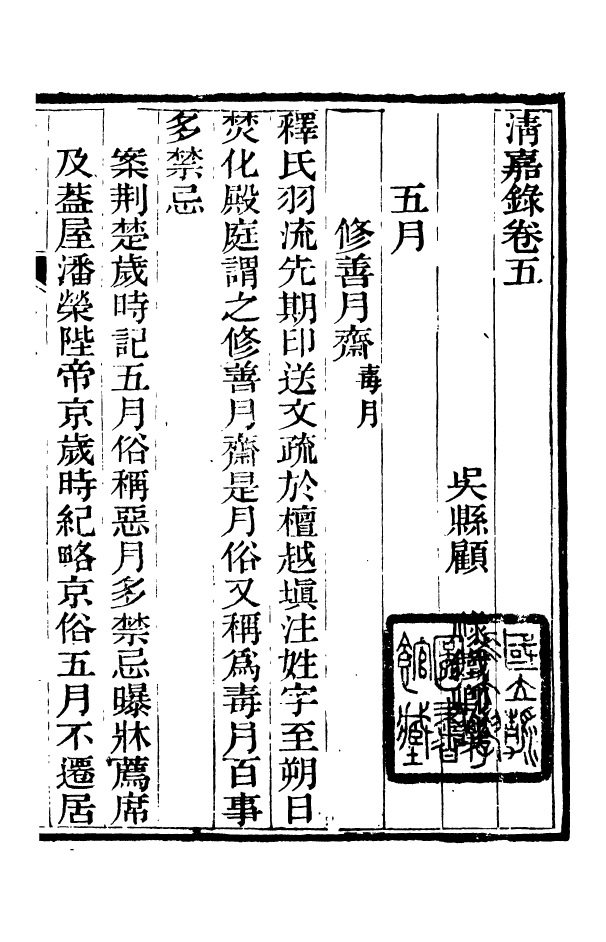 清嘉錄卷五
吳縣顧
五月
修善月齋 毒月
釋氏羽流先期印送文疏於檀越塡注姓字至朔日
焚化殿庭謂之修善月齋是月俗又稱爲毒月百事
多禁忌
案荆楚歲時記五月俗稱惡月多禁忌曝牀薦席
及葢屋潘榮陛帝京歲時紀略京俗五月不遷居